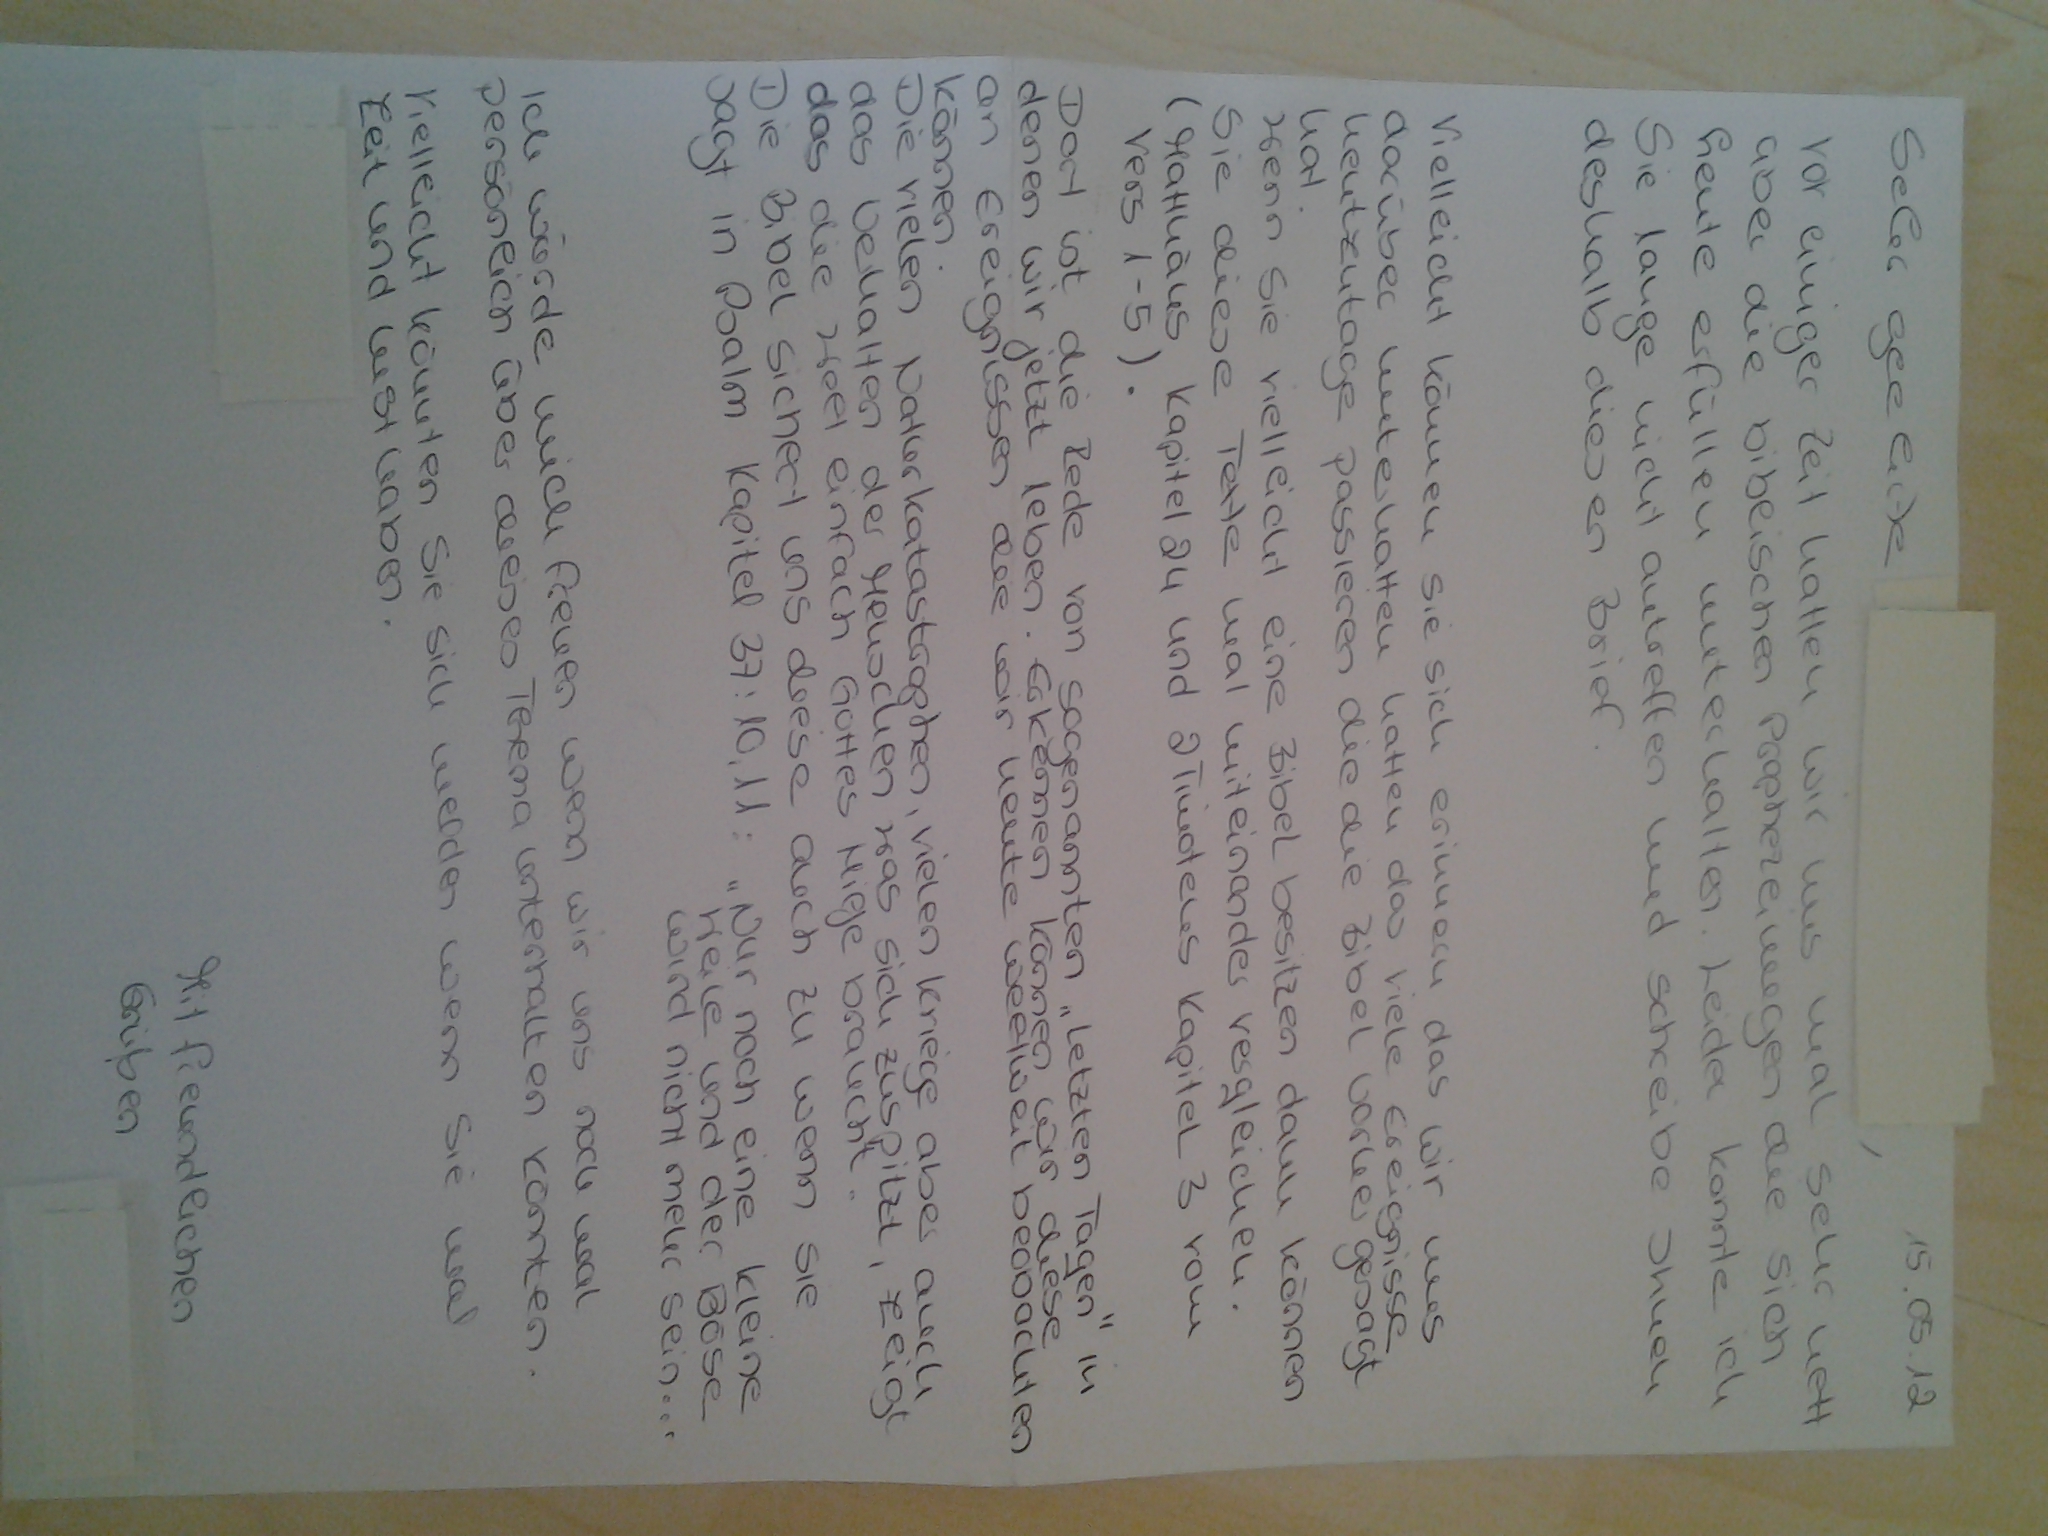 15.05.12
Sehr geehrte ,
Vor einiger Zeit hatten wir uns mal sehr nett
über die biblischen Prophezeiungen die sich
heute erfüllen unterhalten. Leider konnte ich
Sie lange nicht antreffen und schreibe Ihnen
deshalb diesen Brief.
Vielleicht können sie sich erinnern das wir uns
darüber unterhalten hatten das viele Ereignisse
heutzutage passieren die die Bibel vorhergesagt
hat.
Wenn Sie vielleicht eine Bibel besitzen dann können
Sie diese Texte mal miteinander vergleichen.
(Matthäus Kapitel 24 und 2 Timoteus Kapitel 3 vom
Vers 1-5).
Dort ist die Rede von sogenannten „letzten Tagen" in
denen wir jetzt leben. Erkennen können wir diese
an Ereignissen die wir heute weltweit beobachten
können.
Die vielen Naturkatastrophen, vielen Kriege aber auch
das Verhalten der Menschen was sich zuspitzt, zeigt
das die Welt einfach Gottes Hilfe braucht.
Die Bibel sichert uns diese auch zu wenn sie
sagt in Psalm Kapitel 37:10,11: „Nur noch eine kleine
Weile und der Böse
wird nicht mehr sein..."
Ich würde mich freuen wenn wir uns noch mal
persönlich über dieses Thema unterhalten könnten.
Vielleicht könnten Sie sich melden wenn Sie mal
Zeit und Lust haben.
Mit freundlichen
Grüßen